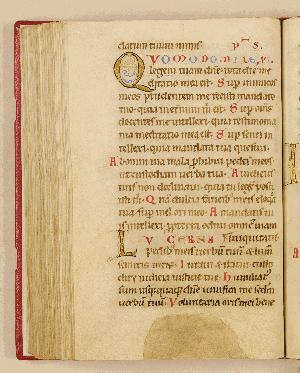 clarum tuum nimis. p S.
QVOMODO DILEXI
legem tuam dñe tota die me
ditatio mea est. Sup inimicos
meos prudentem me fecisti mandato
tuo quia in eternum m est. Sup oms
docentes me intellexi quia testimonia
tua meditatio mea est. Sup senes in
tellexi quia mandata tua quesiui.
Ab omni uia mala phibui pedes meos
ut custodiam uerba tua. A iudiciis
tuis non declinaui quia tu lege posu
isti m. Quã dulcia faucib meis eloqa
tua sup mel ori meo. A mandatis tu
is intellexi ppterea odiui omnẽ uiam
LVCERNA
pedib meis uerbũ tuũ et lum
semitis meis. Iuraui et statui custo
dire iudicia iusticie tue. Humiliat
sum usquequaq dñe uiuifica me scdm
uerbũ tuũ. Voluntaria oris mei bene